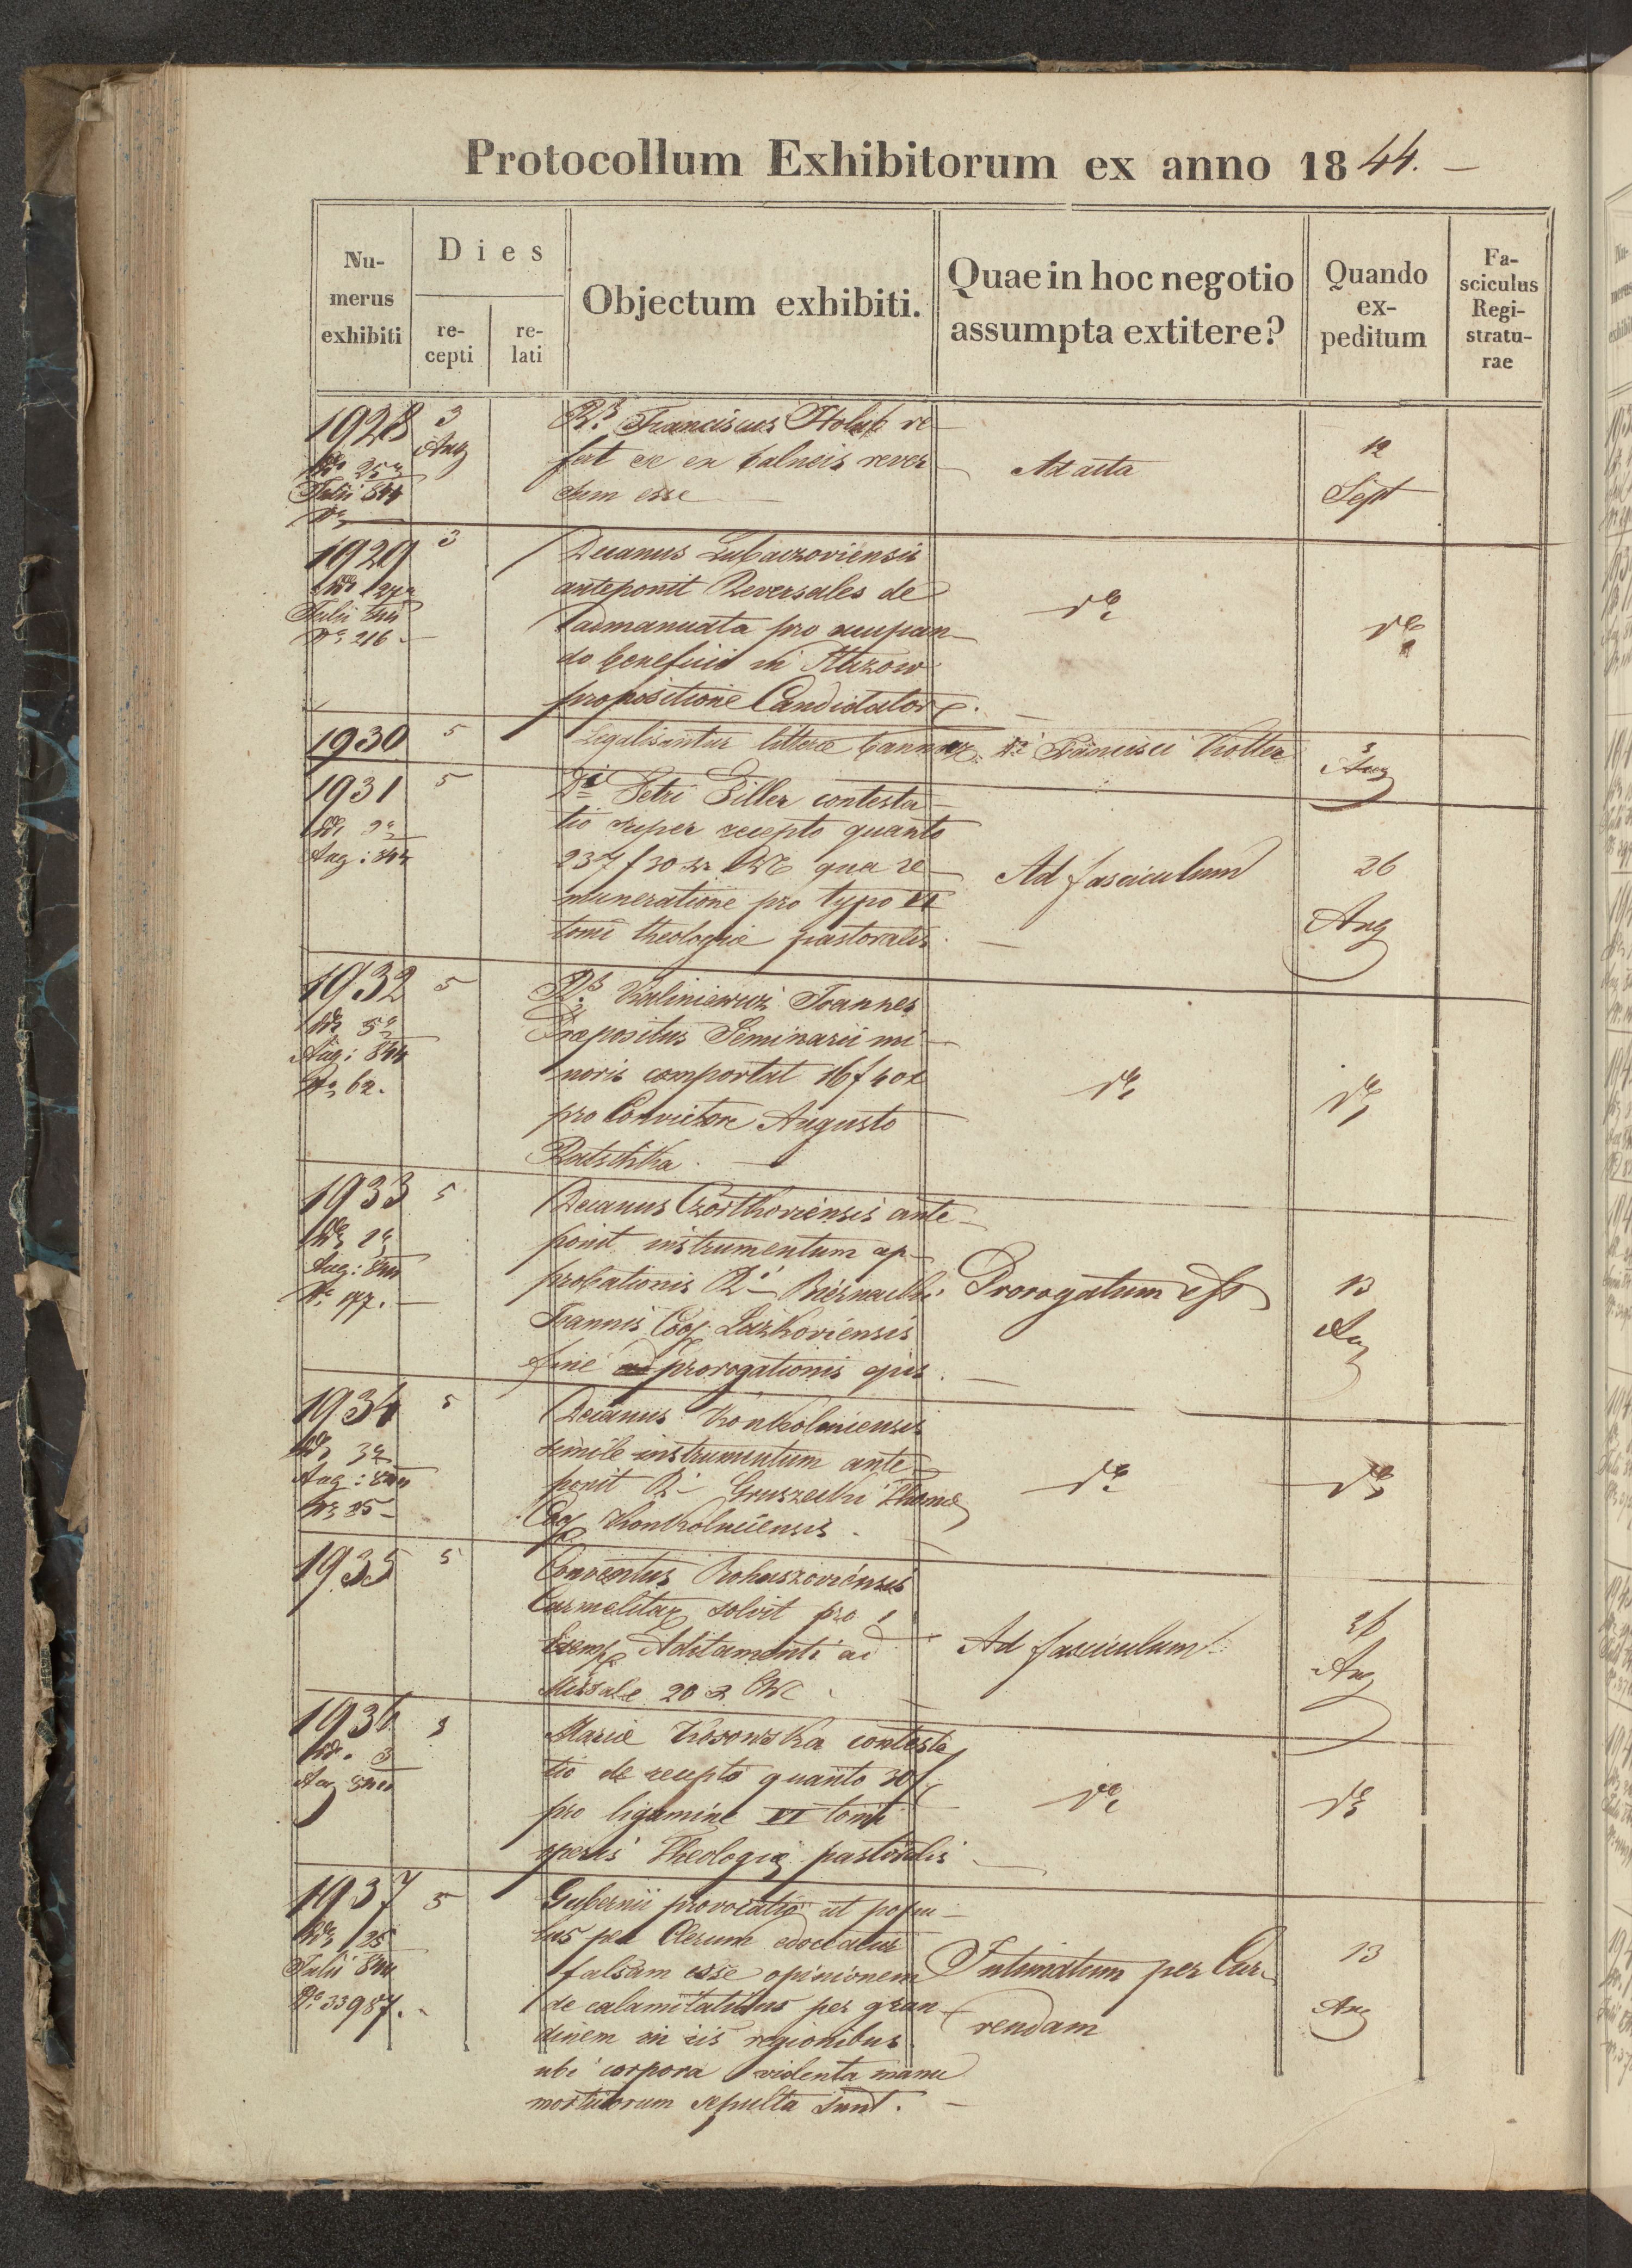 Protocollum Exhibitorum ex anno 1844. —
Nu-
merus
exhibiti
Dies
re-
cepti
re-
lati
Objectum exhibiti.
Quae in hoc negotio
assumpta extitere?
Quando
ex-
peditum
Fa-
sciculus
Regi-
stratu-
rae
1928
3
Aug
Julii 844
Rs. Franciscus Holub re-
fert se ex balneis rever-
sum esse —
Ad acta
12
Sept
1929
3
Julii 844
No 216. —
Decanus Lubaczoviensis
anteponit Reversales de
admanuata pro occupan-
do beneficio in
propositione Candidator
1930
5
Legalisantur litterae Francisci
5
Aug
1931
5
Aug: 844
Di Petri Piller contesta-
tio super recepto quanto
237 f 30 xr qua re-
muneratione pro typo VI
tomi theologiae pastoralis. —
Ad fasciculum
26
Aug
1932
5
dto 5a
Aug: 844
No 62.
Rs. Kaliniewicz Joannes
Praepositus Seminarii mi-
noris comportat 16 f 40 x
pro Convictore Augusto
Ratschka. —
dto
dto
1933
5
Aug: 844
No 177. —
Decanus Czortkoviensis ante-
ponit instrumentum ap-
probationis Ri Biernacki
Joannis Coop.
fine prorogationis ejus. —
Prorogatum est
13
Aug
1934
5
dto 3a
Aug: 844
Decanus Konkolniciensis
simile instrumentum ante-
ponit Ri Gruszecki Thomae
Coop Konkolniciensis.
dto
dto
1935
5
Conventus
Carmelitar solvit pro 1
Exempl Aditamenti ad
Missale 20 x
Ad fasciculum
26
Aug
1936
5
dto. 3
Aug 844
Mariae Kosowska contesta-
tio de recepto quanto 30 f
pro ligamine VI tomi
operis Theologiae pastoralis —
dto
dto
1937
5
dto 25
Julii 844
No 33987.
Gubernii provocatio ut popu-
lus per Clerum edoceatur
falsam esse opinionem
de calamitatibus per gran-
dinem in iis regionibus
ubi corpora violenta manu
mortuorum sepulta sunt. —
Intimatum per Cur-
rendam
13
Aug